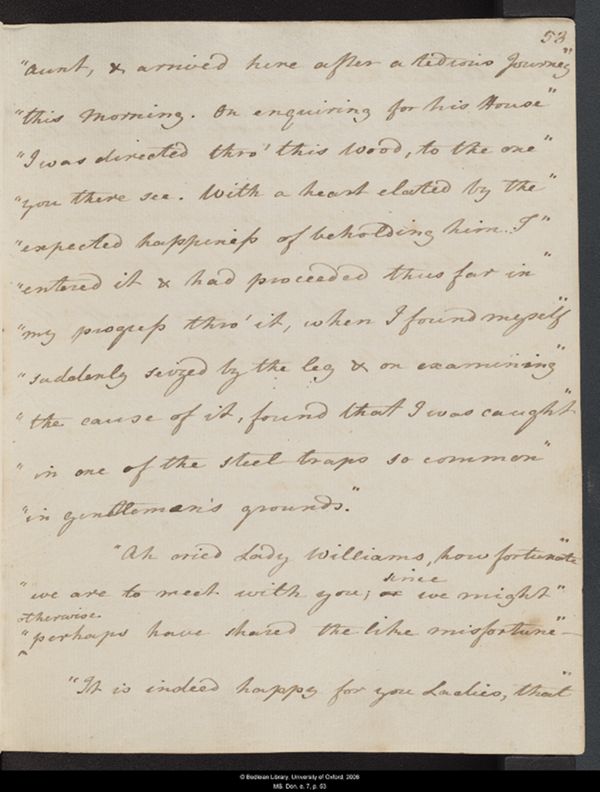 53
"aunt, & arrived here after a tedious Journey"
"this Morning. On enquiring for his House"
"I was directed thro' this Wood, to the one"
"you there see. With a heart elated by the"
"expected happiness of beholding him I"
"entered it & had proceeded thus far in"
"my progress thro' it, when I found myself"
"suddenly seized by the leg & on examining"
"the cause of it, found that I was caught"
"in one of the steel traps so common"
"in gentlemen's grounds."
"Ah cried Lady Williams, how fortunate"
since
"we are to meet with you; or we might"
otherwise
"perhaps have shared the like misfortune"—
"It is indeed happy for you Ladies, that"
© Bodleian Library, University of Oxford, 2008
MS. Don. e. 7, p. 53